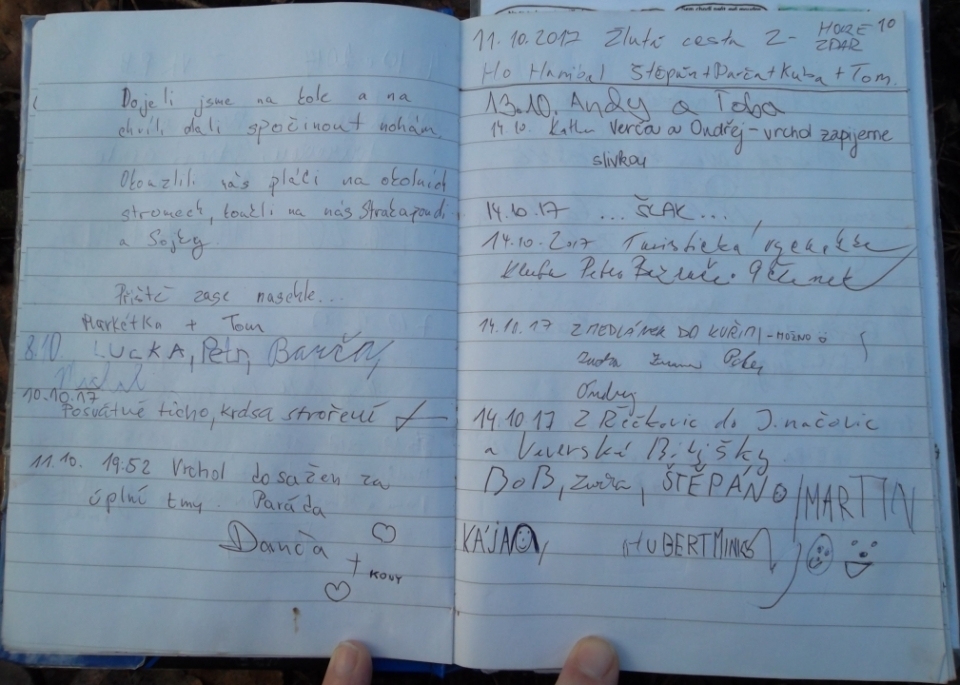 Dojeli jsme na kole a na
chvíli dali spočinout nohám.
Okouzlili nás ptáči na okolních
stromech, koukli na nás Strakapoudi
a Sojky.
Příště zase nasehle...
Markétka + Tom
8.10. LUCKA, Petr, Barča
10.10.17
Posvátné ticho, krása stvoření
11.10. 19:52 Vrchol dosažen za
úplní tmy. Paráda
Danča
+ KOVY
11.10.2017 Žlutá cesta Z- HOŘE 10
ZDAR
Ho Hanibal Štěpán+Darča+Kuba+Tom.
13.10. Andy a Toba
14.10. Verča a Ondřej - vrchol zapijeme
slivkou
14.10.17 ... ŠLAK...
14.10.2017 Turistická
klubu Petra Bezruče. 9 člen
14.10.17 Z MEDLÁNEK DO KUŘIMI
Ondry
14.10.17 Z Řečkovic do Jinačovic
a Veverské Bitýšky
BOB, ŠTĚPÁN MARTIN
KÁJA, HUBERT